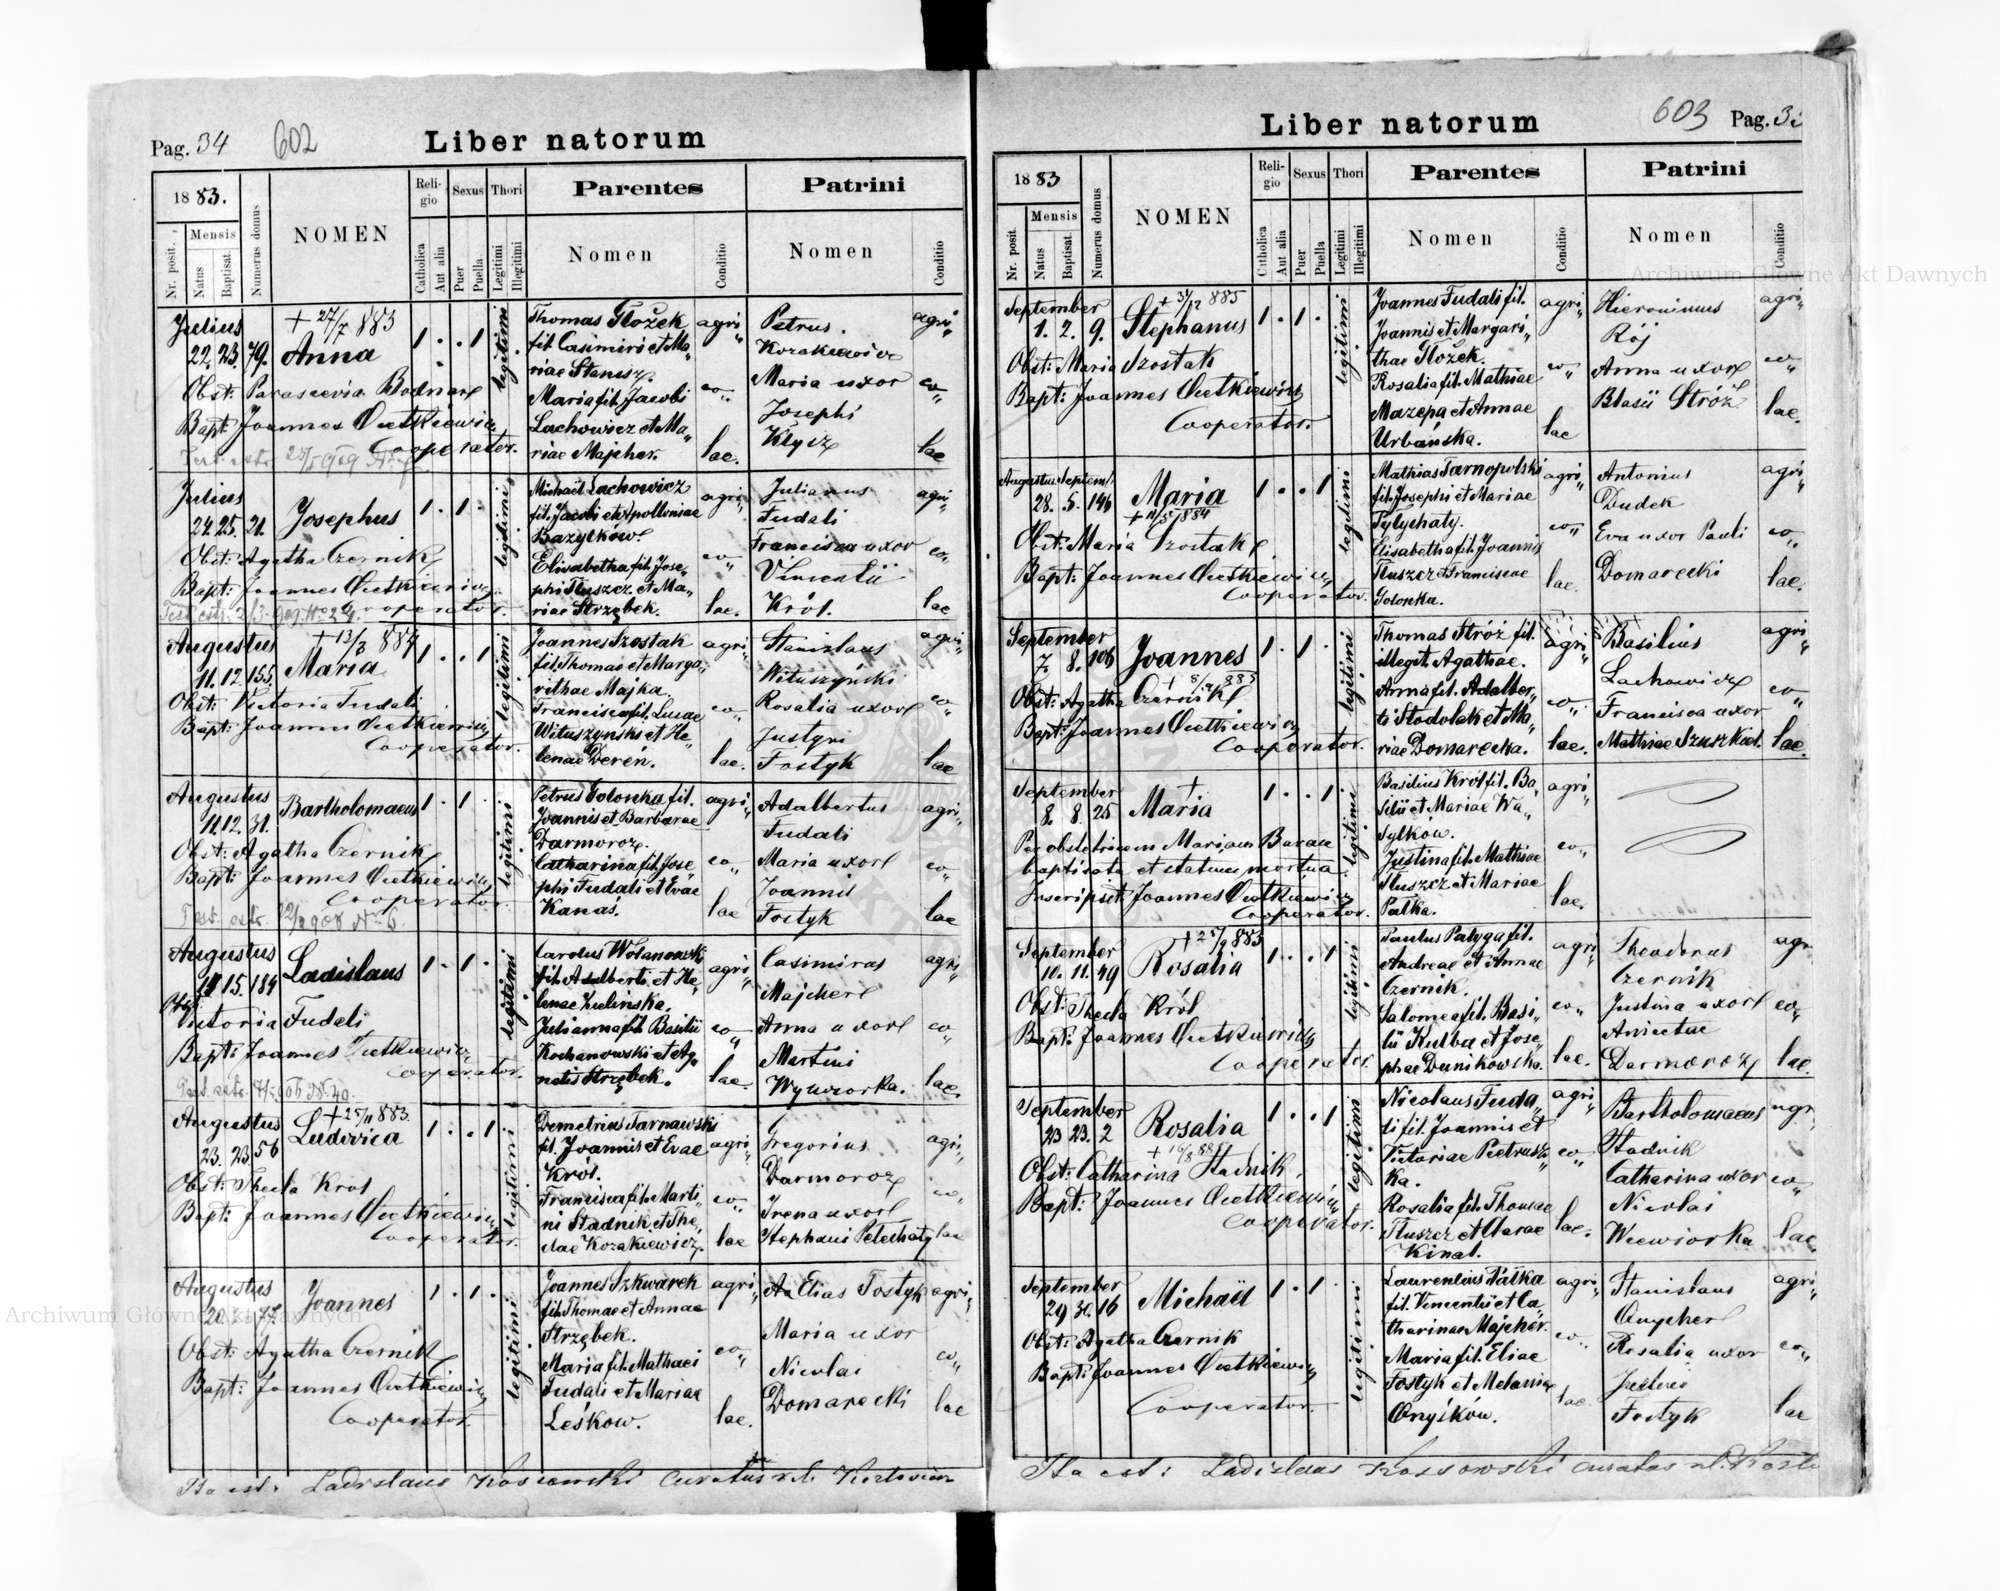 Pag. 34 602
Liber natorum
1883.
Nr. posit.
Mensis
Natus
Baptisat.
Numerus domus
NOMEN
Religio
Catholica
Aut alia
Sexus
Puer
Puella
Thori
Legitimi
Illegitimi
Parentes
Nomen
Conditio
Patrini
Nomen
Conditio
Julius
22. 23. 79.
+ 27/7 883
Anna
1 . . 1
legitimi
Obst: Parascevia Bodnar
Bapt: Joannes Cietkiewicz
Cooperator.
Thomas Głożek
fil. Casimiri et Ma„
riae Stanisz.
Maria fil. Jacobi
Lachowicz et Ma„
riae Majcher.
agri„
co„
lae.
Petrus
Kozakiewicz
Maria uxor
Josephi
Kłysz
agri„
co„
lae
Julius
24. 25. 21.
Josephus
1 . 1 .
legitimi
Obst: Agatha Czernik
Bapt: Joannes Cietkiewicz
Cooperator.
Michaël Lachowicz
fil. Jacobi et Apolloniae
Bazylków
Elisabetha fil. Jose„
phi Tłuszcz et Ma„
riae Strzębek.
agri„
co„
lae.
Julianus
Fudali
Francisca uxor
Vincentii
Król.
agri„
co„
lae
Augustus
11. 12. 155.
+ 13/3 884
Maria
1 . . 1
legitimi
Obst: Victoria Fudali
Bapt: Joannes Cietkiewicz
Cooperator.
Joannes Szostak
fil. Thomae et Marga„
rithae Majka.
Francisca fil. Lucae
Wituszyński et He„
lenae Dereń.
agri„
co„
lae.
Stanislaus
Wituszyński
Rosalia uxor
Justyni
Fostyk
agri„
co„
lae
Augustus
11. 12. 31.
Bartholomaeus
1 . 1 .
legitimi
Obst: Agatha Czernik
Bapt: Joannes Cietkiewicz
Cooperator.
Petrus Golonka fil.
Joannis et Barbarae
Darmoroz.
Catharina fil. Jose„
phi Fudali et Evae
Kanas.
agri„
co„
lae
Adalbertus
Fudali
Maria uxor
Joannis
Fostyk
agri„
co„
lae
Augustus
15. 184
Ladislaus
1 . 1 .
legitimi
Obst:
Victoria Fudali
Bapt: Joannes Cietkiewicz
Cooperator.
Carolus Wolanowski
fil. Adalberti et He„
lenae Zielinska.
Julianna fil. Basilii
Kochanowski et Ag„
netis Strzębek.
agri„
co„
lae.
Casimirus
Majcher
Anna uxor
Martini
Wywiorka.
agri„
co„
lae.
Augustus
23. 23. 56
+ 25/11 883.
Ludovica
1 . . 1
legitimi
Obst: Thecla Krol
Bapt: Joannes Cietkiewicz
Cooperator.
Demetrius Tarnawski
fil. Joannis et Evae
Król.
Francisca fil. Marti„
ni Stadnik et The„
clae Kozakiewicz.
agri„
co„
lae
Gregorius
Darmoroz
Irena uxor
Stephani Petechaty
agri„
co„
lae
Augustus
Joannes
1 . 1 .
legitimi
Obst: Agatha Czernik
Bapt: Joannes Cietkiewicz
Cooperator.
Joannes Szkwarek
fil. Thomae et Annae
Strzębek.
Maria fil. Mathaei
Fudali et Mariae
Leśkow.
agri„
co„
lae.
Elias Fostyk
Maria uxor
Nicolai
Domarecki
agri„
co„
lae
Ita est: Ladislaus Kossowski curatus
603 Pag. 35
Liber natorum
1883
Nr. posit.
Mensis
Natus
Baptisat.
Numerus domus
NOMEN
Religio
Catholica
Aut alia
Sexus
Puer
Puella
Thori
Legitimi
Illegitimi
Parentes
Nomen
Conditio
Patrini
Nomen
Conditio
September
1. 2. 9.
Stephanus
1 . 1 .
legitimi
Obst: Maria Szostak
Bapt: Joannes Cietkiewicz
Cooperator.
Joannes Fudali fil.
Joannis et Margari„
thae Głożek.
Rosalia fil. Mathiae
Mazepa et Annae
Urbańska.
agri„
co„
lae
Hieronimus
Rój
Anna uxor
Blasii Stróż
agri„
co„
lae.
Augustus Septemb.
28. 5. 146
Maria
1 . . 1
legitimi
Obst: Maria Szostak
Bapt: Joannes Cietkiewicz
Cooperator.
Mathias Tarnopolski
fil. Josephi et Mariae
Pylychaty.
Elisabetha fil. Joannis
Tłuszcz et Franciscae
Golonka.
agri„
co„
lae.
Antonius
Dudek
Eva uxor Pauli
Domarecki
agri„
co„
lae.
September
7. 8. 106
Joannes
1 . 1 .
legitimi
Obst: Agatha Czernik
Bapt: Joannes Cietkiewicz
Cooperator.
Thomas Stróż fil.
illegit. Agathae.
Anna fil. Adalber„
ti Stodolak et Ma„
riae Domarecka.
agri„
co„
lae.
Basilius
Lachowicz
Francisca uxor
Mathiae Szuszkiel.
agri„
co„
lae.
September
8. 8. 25
+
Maria
1 . . 1
legitimi
Per obstetricem Mariam Baran
baptisata et statum mortua.
Inscripsit Joannes Cietkiewicz
Cooperator.
Basilius Król fil. Ba„
silii et Mariae Wa„
sylków.
Justina fil. Mathiae
Tłuszcz et Mariae
Patka.
agri„
co„
lae.
September
10. 11. 49
+ 25/9 883
Rosalia
1 . . 1
legitimi
Obst: Thecla Król
Bapt: Joannes Cietkiewicz
Cooperator.
Paulus Patyga fil.
Andreae et Annae
Czernik.
Salomea fil. Basi„
lii Kulba et Jose„
phae Dunikowska.
agri„
co„
lae.
Theodorus
Czernik
Justina uxor
Anictae
Darmoroz
agr
co„
lae.
September
23 23. 2
Rosalia
1 . . 1
legitimi
Obst: Catharina Stadnik.
Bapt: Joannes Cietkiewicz
Cooperator.
Nicolaus Fuda„
li fil. Joannis et
Victoriae Pietrusz„
ka.
Rosalia fil. Thomae
Tłuszcz et Clarae
Kinal.
agri„
co„
lae.
Bartholomaeus
Stadnik
Catharina uxor
Nicolai
Wiewiorka
agr
co„
lae.
September
29 30 16
Michaël
1 . 1
legitimi
Obst: Agatha Czernik
Bapt: Joannes Cietkiewicz
Cooperator.
Laurentius Patka
fil. Vincentii et Ca„
tharinae Majcher.
Maria fil. Eliae
Fostyk et Melania
Onyśków.
agri„
co„
lae.
Stanislaus
Onycher
Rosalia uxor
Fostyk
agri„
co„
lae
Ita est: Ladislaus Kossowski curatus
Archiwum Główne Akt Dawnych
Archiwum Główne Akt Dawnych